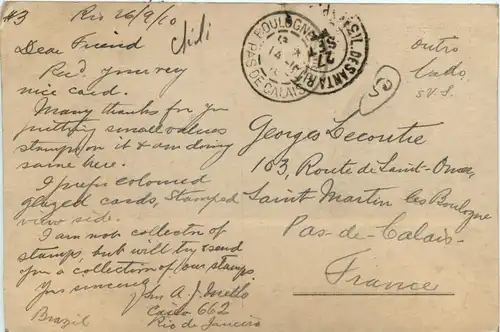 #3 Rio 26/9/10
Dear Friend
Recd. your very
nice card.
Many thanks for yr
putting small values
stamps on it & am doing
same here.
I prefer coloured
glazed cards, stamped
view side.
I am not collector of
stamps, but will try & send
you a collection of our stamps.
Yrs sincerely
John A. J.
Caixa 662
Rio de Janeiro
Brazil
BOULOGNE
PAS DE CALAIS
27
SET
Outro
Lado
S.V.S.
Georges Lecoutre
103, Route de Saint-Omer,
Saint Martin les Boulogne
Pas-de-Calais
France